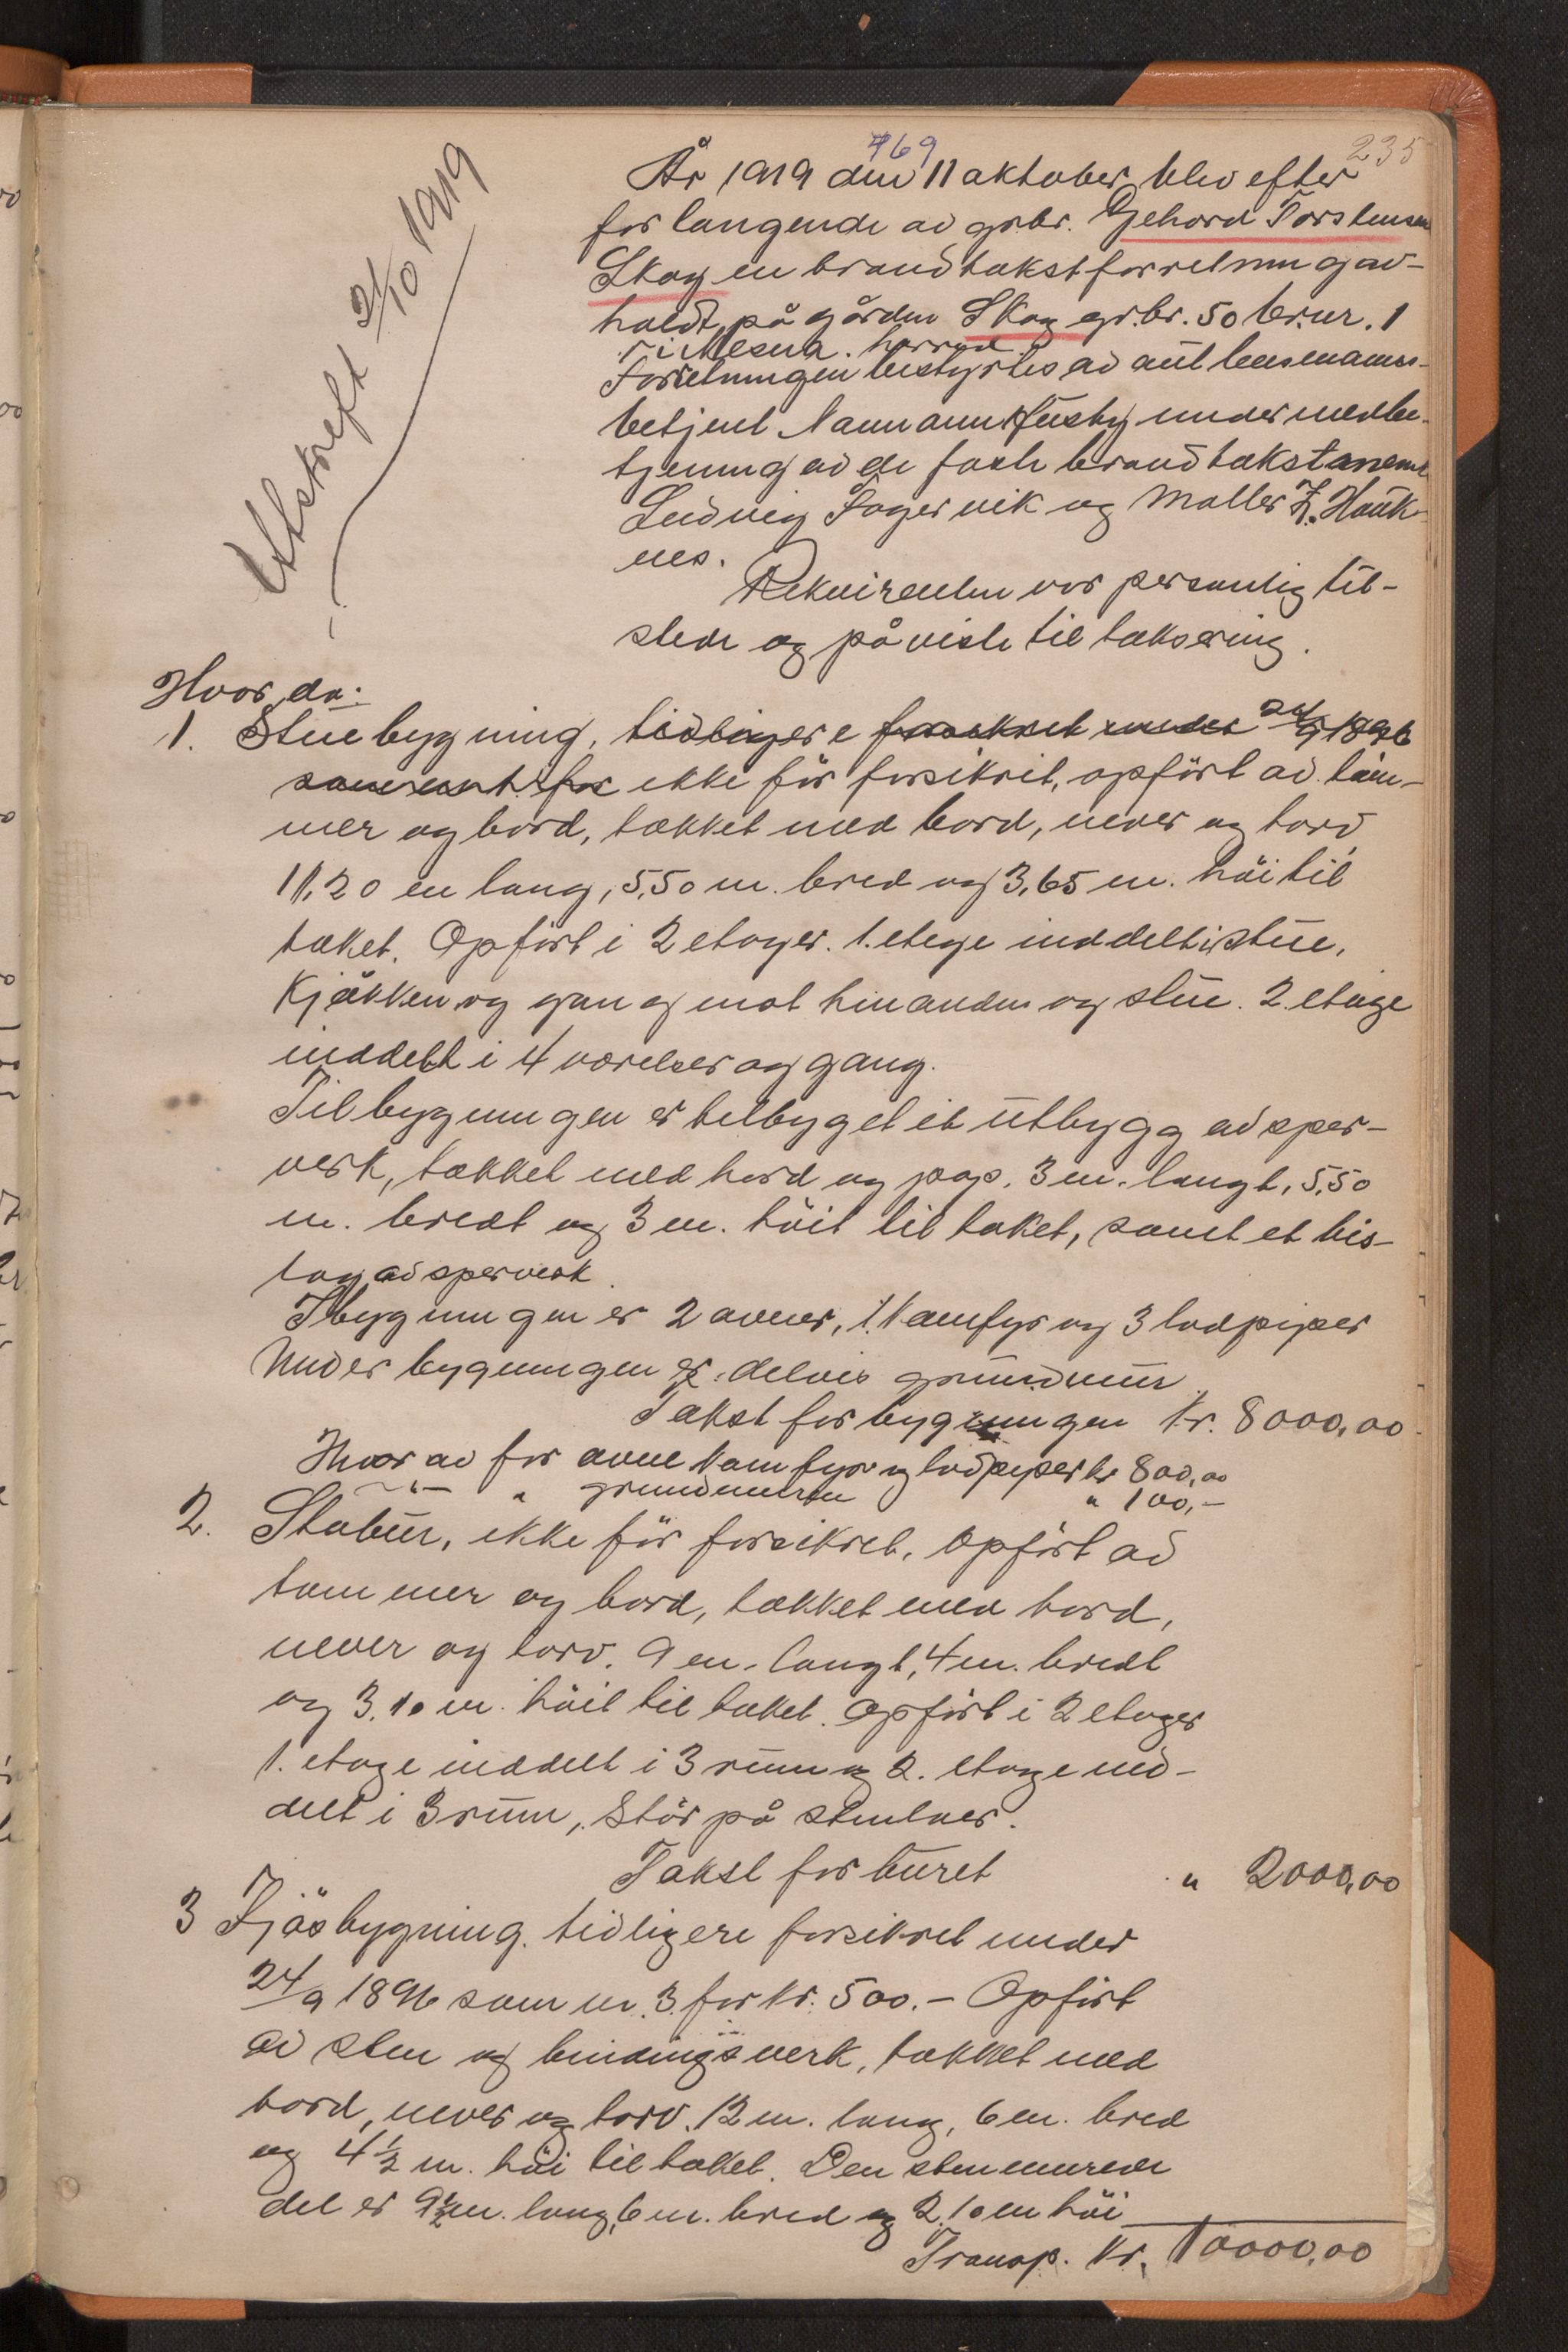 235
469
År 1919 den 11 oktober blev efter
forlangende av grbr. Gehord Torstensen
Skog en brandtakstforretning av-
holdt på gården Skog gr.br. 50 br.nr. 1
i Nesna herred.
Forretningen bestyrtes av aut lensmanns-
betjent Normann Husby under medbe-
tjening av de faste brandtakstmenn
Ludvig Fagervik og Møller Z. Hauk-
nes.
Rekvirenten var personlig til-
stede og påviste til taksering.
Utskrift 21/10 1919
Hvor da:
1. Stuebygning, tidligere forsikret under 24/9 1896
som nr. 1 for ikke før forsikret, opført av töm-
mer og bord, tækket med bord, never og torv
11,20 m lang, 5,50 m. bred og 3,65 m. höi til
taket. Opført i 2 etager. 1. etage inddelt i stue,
kjøkken og gang mot hinanden og stue. 2. etage
inddelt i 4 værelser og gang.
Til bygningen er tilbygget et utbygg av sper-
verk, tækket med bord og pap. 3 m. langt, 5,50
m. bredt og 3 m. höit til taket, samt et bis-
lag av sperverk.
I bygningen er 2 ovner, 1 komfyr og 3 lodpiper
Under bygningen er delvis grundmur.
Takst for bygningen Kr. 8000,00
Hvorav for ovne komfyr og lodpiper kr 800,00
-"- " grundmuren " 100,-
2. Stabur, ikke før forsikret. Opført av
tømmer og bord, tækket med bord,
never og torv. 9 m. langt, 4 m. bredt
og 3.10 m. höit til taket. Opført i 2 etager
1. etage inddelt i 3 rum og 2. etage ind-
delt i 3 rum, Står på stolper.
Takst for buret " 2000,00
3 Fjösbygning. tidligere forsikret under
24/9 1896 som nr. 3. for kr. 500.- Opført
av sten og bindingsverk, tækket med
bord, never og torv. 12 m. lang, 6 m. bred
og 4 1/2 m. höi til taket. Den stenmurede
del er 9 1/2 m. lang, 6 m. bred og 2,10 m höi
Transp. Kr. 10000,00